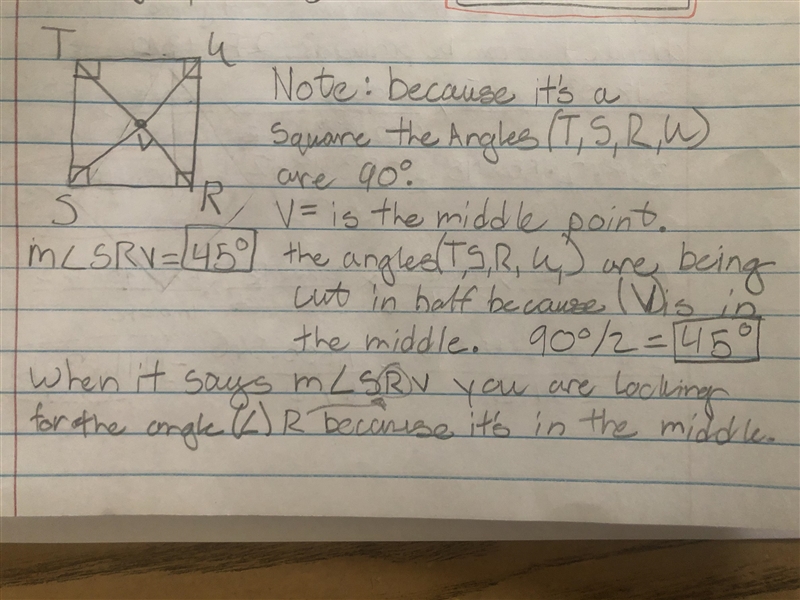 T U
Note: because it's a
square the Angles (T, S, R, U)
are 90°.
V
S R
V= is the middle point.
m∠SRV = 45° the angles (T,S,R, U,) are being
cut in half because (V) is in
the middle. 90°/2 = 45°
When it says m∠SRV you are looking
for the angle (∠) R because it's in the middle.